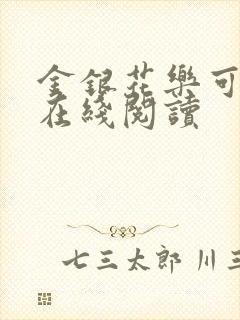 金銀花樂可
在綫閱讀
七三太郎 川三